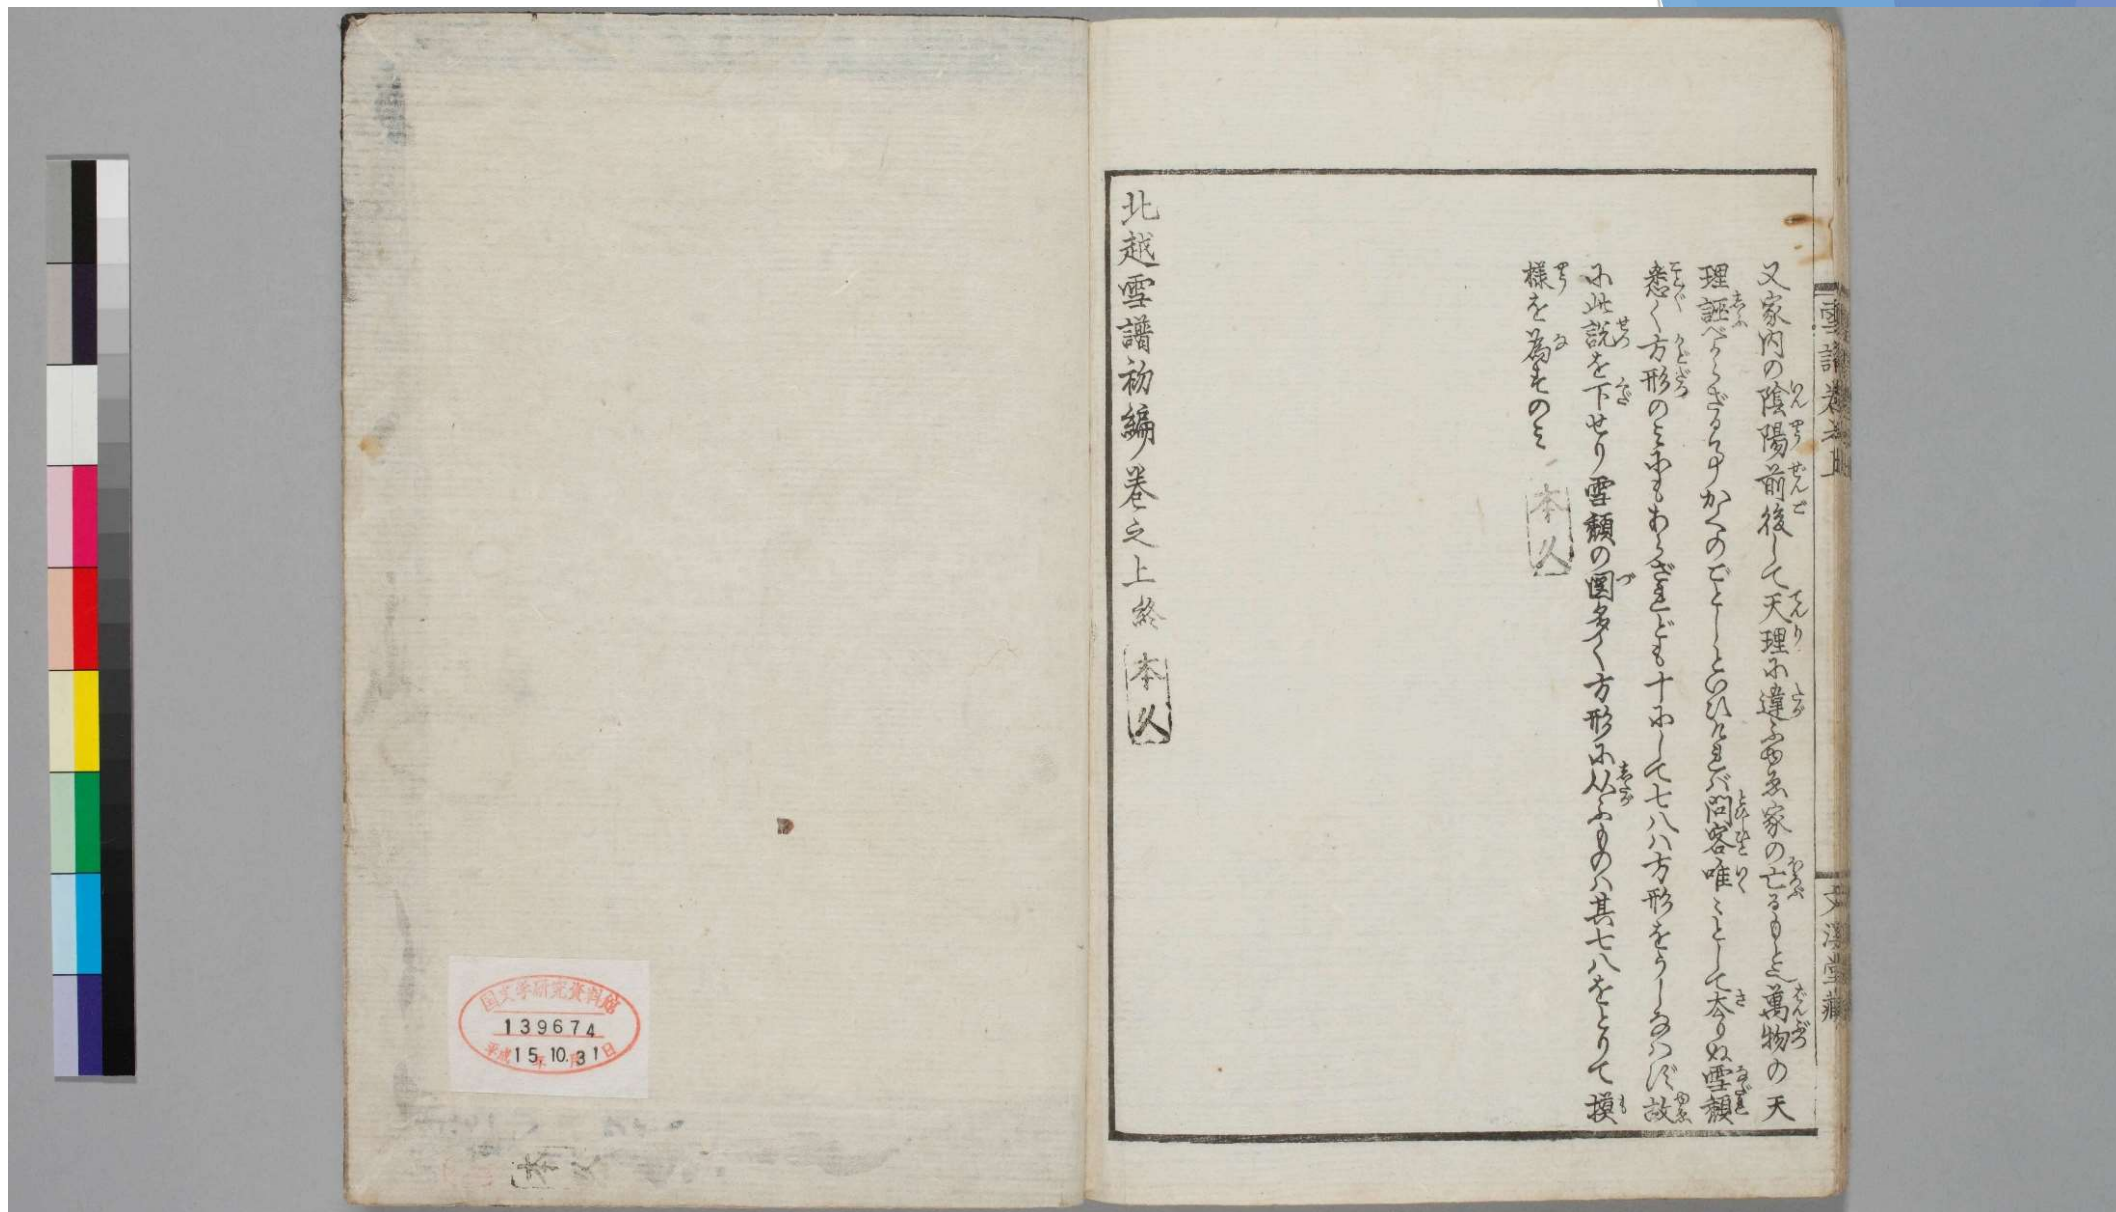 又家内の陰陽前後して天理に違ふゆゑ家の亡るもと也萬物の天
理誣べからざる事かくのごとしといひければ問客唯〻として去りぬ雪頽
悉く方形のみにもあらざれども十にして七八ハ方形をうしなハず故
に此説を下せり雪頽の図多く方形に从ふものハ其七八をとりて模
様を為すのみ
本久
北越雪譜初編巻之上終
本久
雪譜巻之上
文溪堂藏
国文学研究資料館
139674
平成15年10.31日
本久